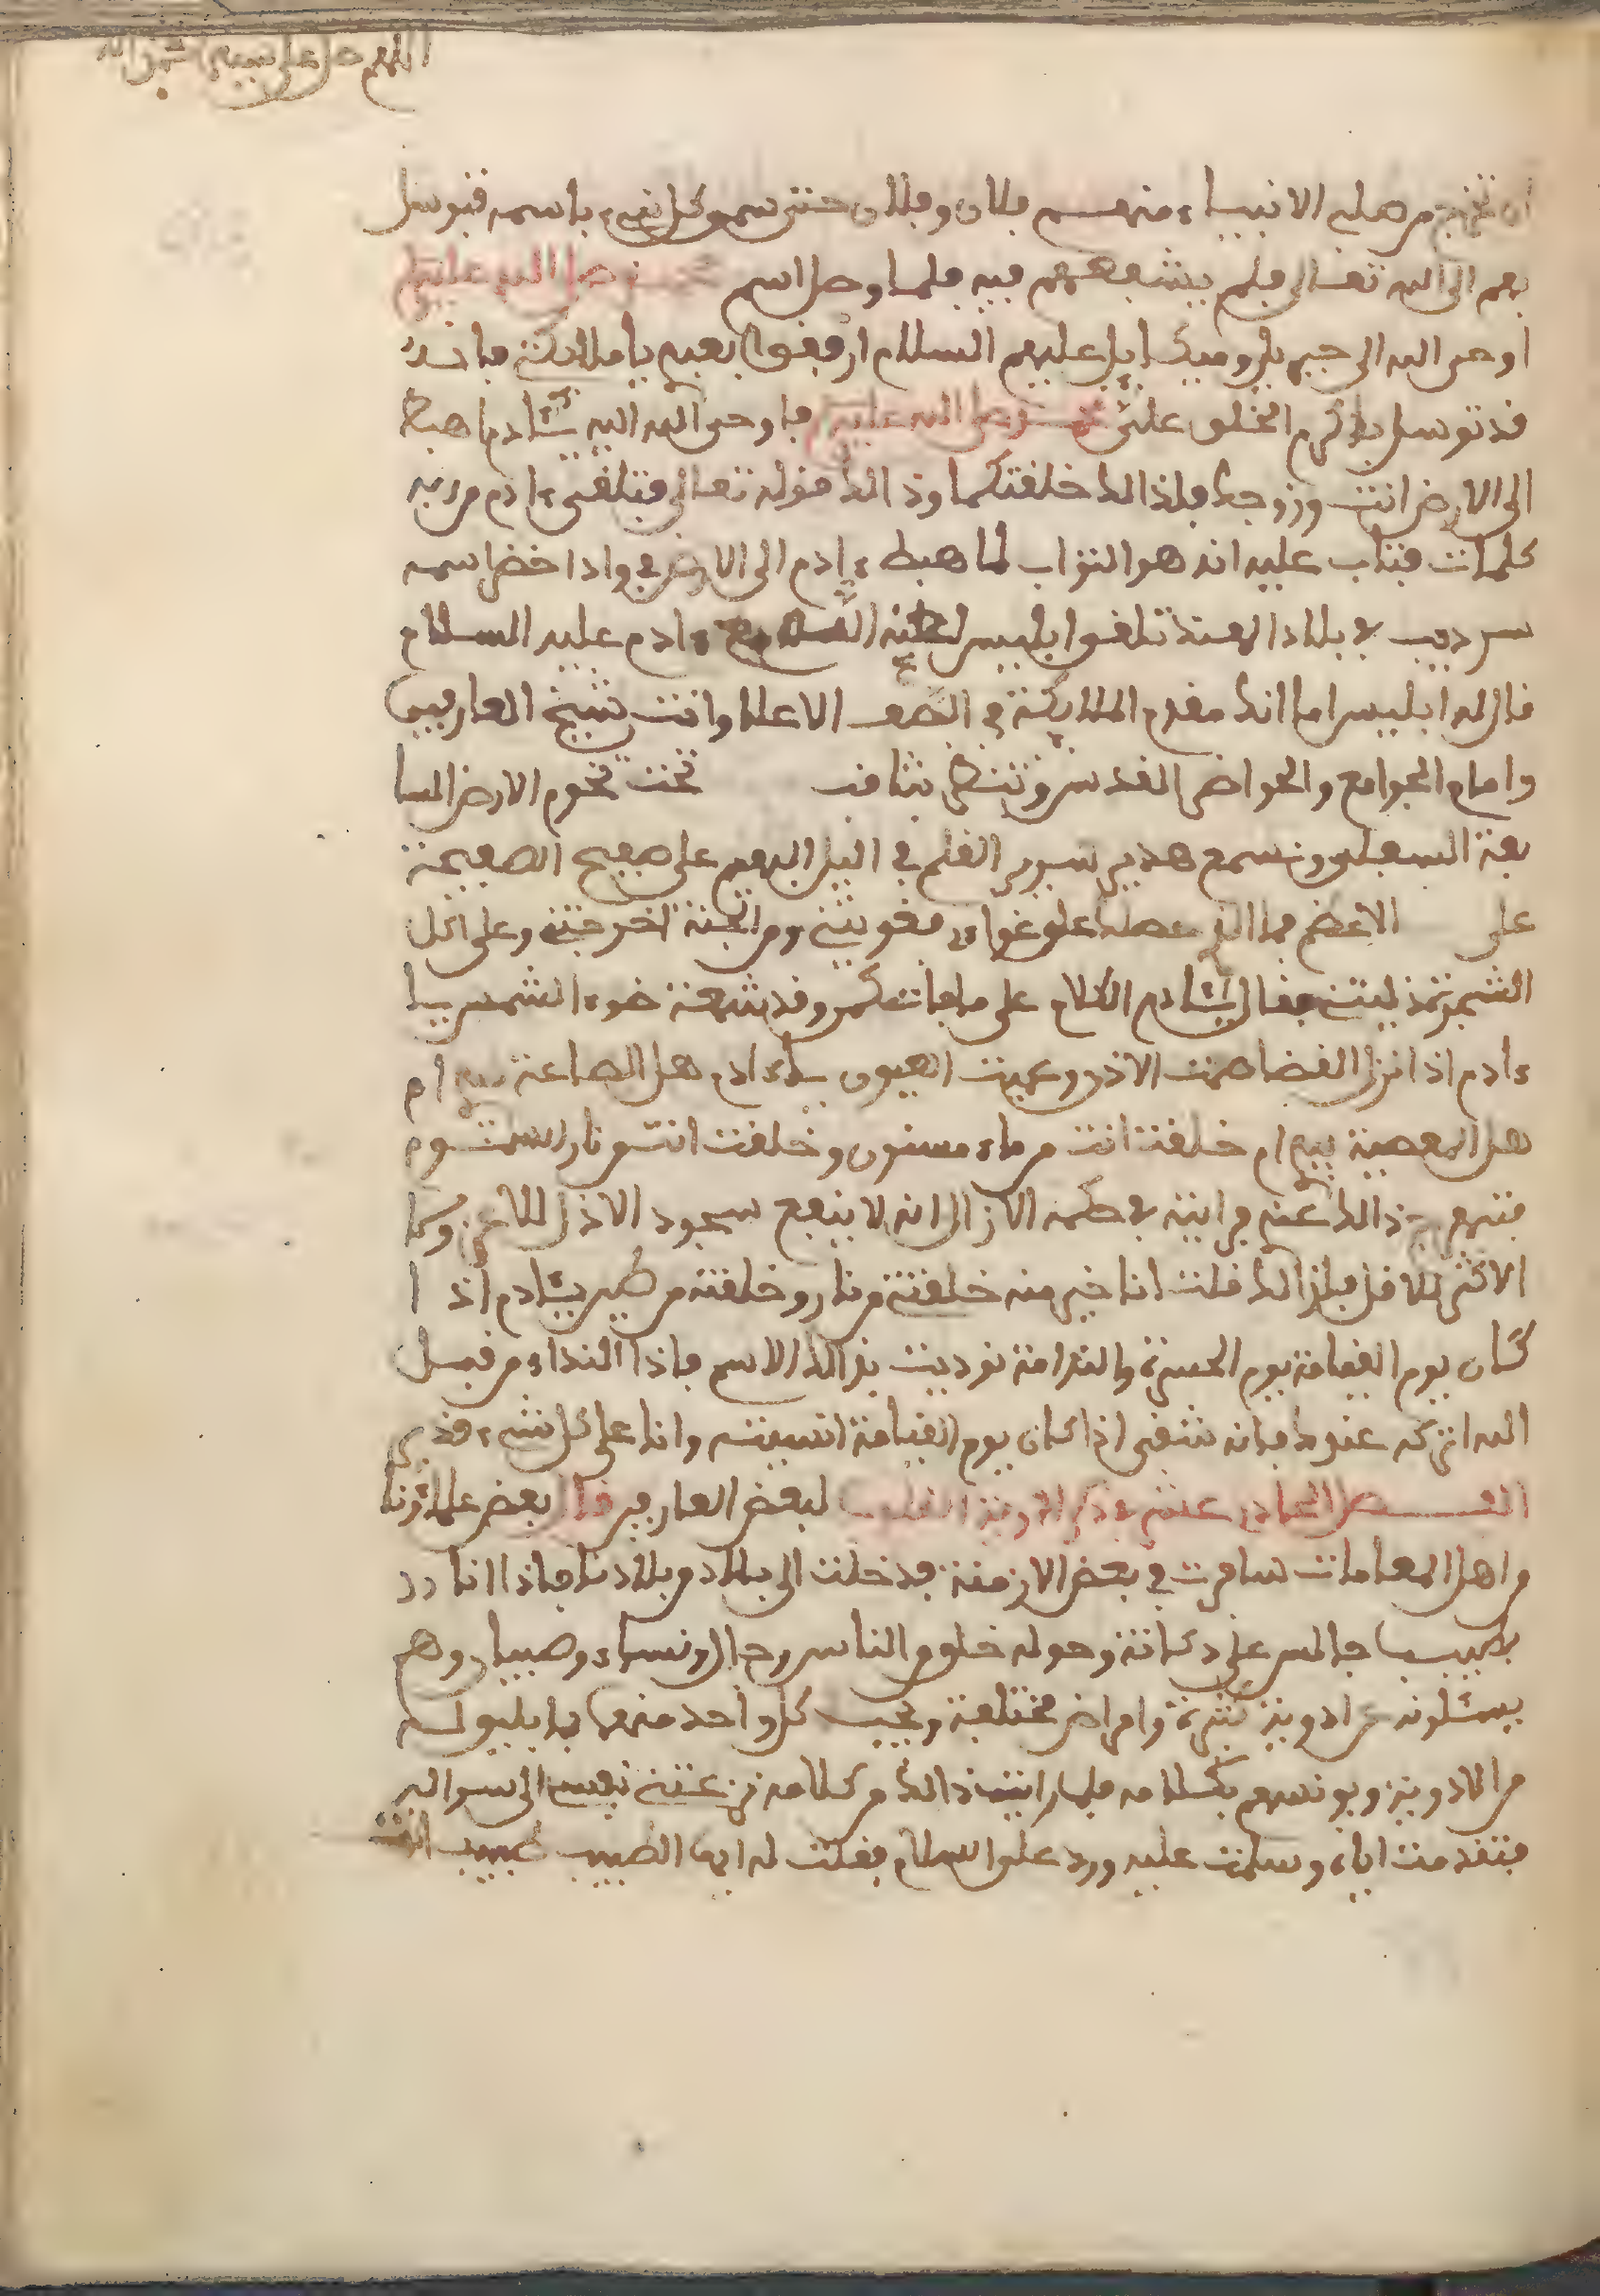 اللهم صل على سيدنا محمد واله
ان تخرج من صلبه الانبياء منهم فلان وفلان حتى سمى كل نبيء باسمه فتوسل
بهم الى الله تعالى فلم يشفعهم فيه فلما وصل اسم محمد صلى الله عليه
اوحى الله الى جبريل وميكايل عليهم السلام ارفقوا بصبي يا ملائكة فانه
قد توسل باكرم الخلق علي محمد صلى الله عليه فاوحى الله اليه يئادم اهبط
الى الارض انت وزوجك فلذالك خلقتكما وذالك قوله تعالى فتلقى ءادم من ربه
كلمات فتاب عليه انه هو التواب لما هبط ءادم الى الارض في واد اخضر اسمه
سرديب في بلاد الهند تلقوا بليس لعنه الله مع ءادم عليه السلام
فقال له ابليس اما انك مقدم الملايكة في الصف الاعلا وانت شيخ العارفين
وامام الجوامع والحواضر القدس وتنظر بثاقب تحت تخوم الارض السا
بعة السفلى وتسمع هدير سرير القلم في اليل البهيم على صفيح الصفيحة
على الاعظم فما الذي حملك على غواي مغويتني ومن الجنة اخرجتني وعلى اكل
الشجرة دليتني فقال يئادم الكلام على ما فات مكر وقد شبهة ضوء الشمس يا
ءادم اذا نزل القضا صمت الاذن وعميت العيون يا ءادم هل الطاعة بيدي ام
هل المعصية بيدي ام خلقت انت من ماء مسنون وخلقت انا من نار السموم
ذالك عني في حكمه الازل انه لا ينفع سجود الاذل للاعز وكما
الاكثر للاقل فلذالك قلت انا خير منه خلقتني من نار وخلقته من طين يئادم اذا
كان يوم القيامة يوم الحسرة والندامة نوديت بذالك الاسم فاذا النداء من قبل
الله اتركه عنوك فانه شقى اذا كان يوم القيامة انسيته وانا على كل شيء قدير
الفصل الحادي عشر في ذكر ادوية القلوب لبعض العارفين قال بعض علمائنا
من اهل المعاملات سافرت في بعض الازمنة فدخلت الى بلاد من بلادنا فاذا انا
بطبيب جالس على دكانته وحوله خلق من الناس رجال ونساء وصبيان وهم
يسئلونه عن ادوية كثيرة وامراض مختلفة ويجيب كل واحد منهم بما يليق له
من الادوية ويونسهم بكلامه فلما رايت ذالك من كلامه نزعتني نفسي الى سواله
فتقدمت اياه وسلمت عليه ورد علي السلام فقلت له ايها الطبيب طبيب انت